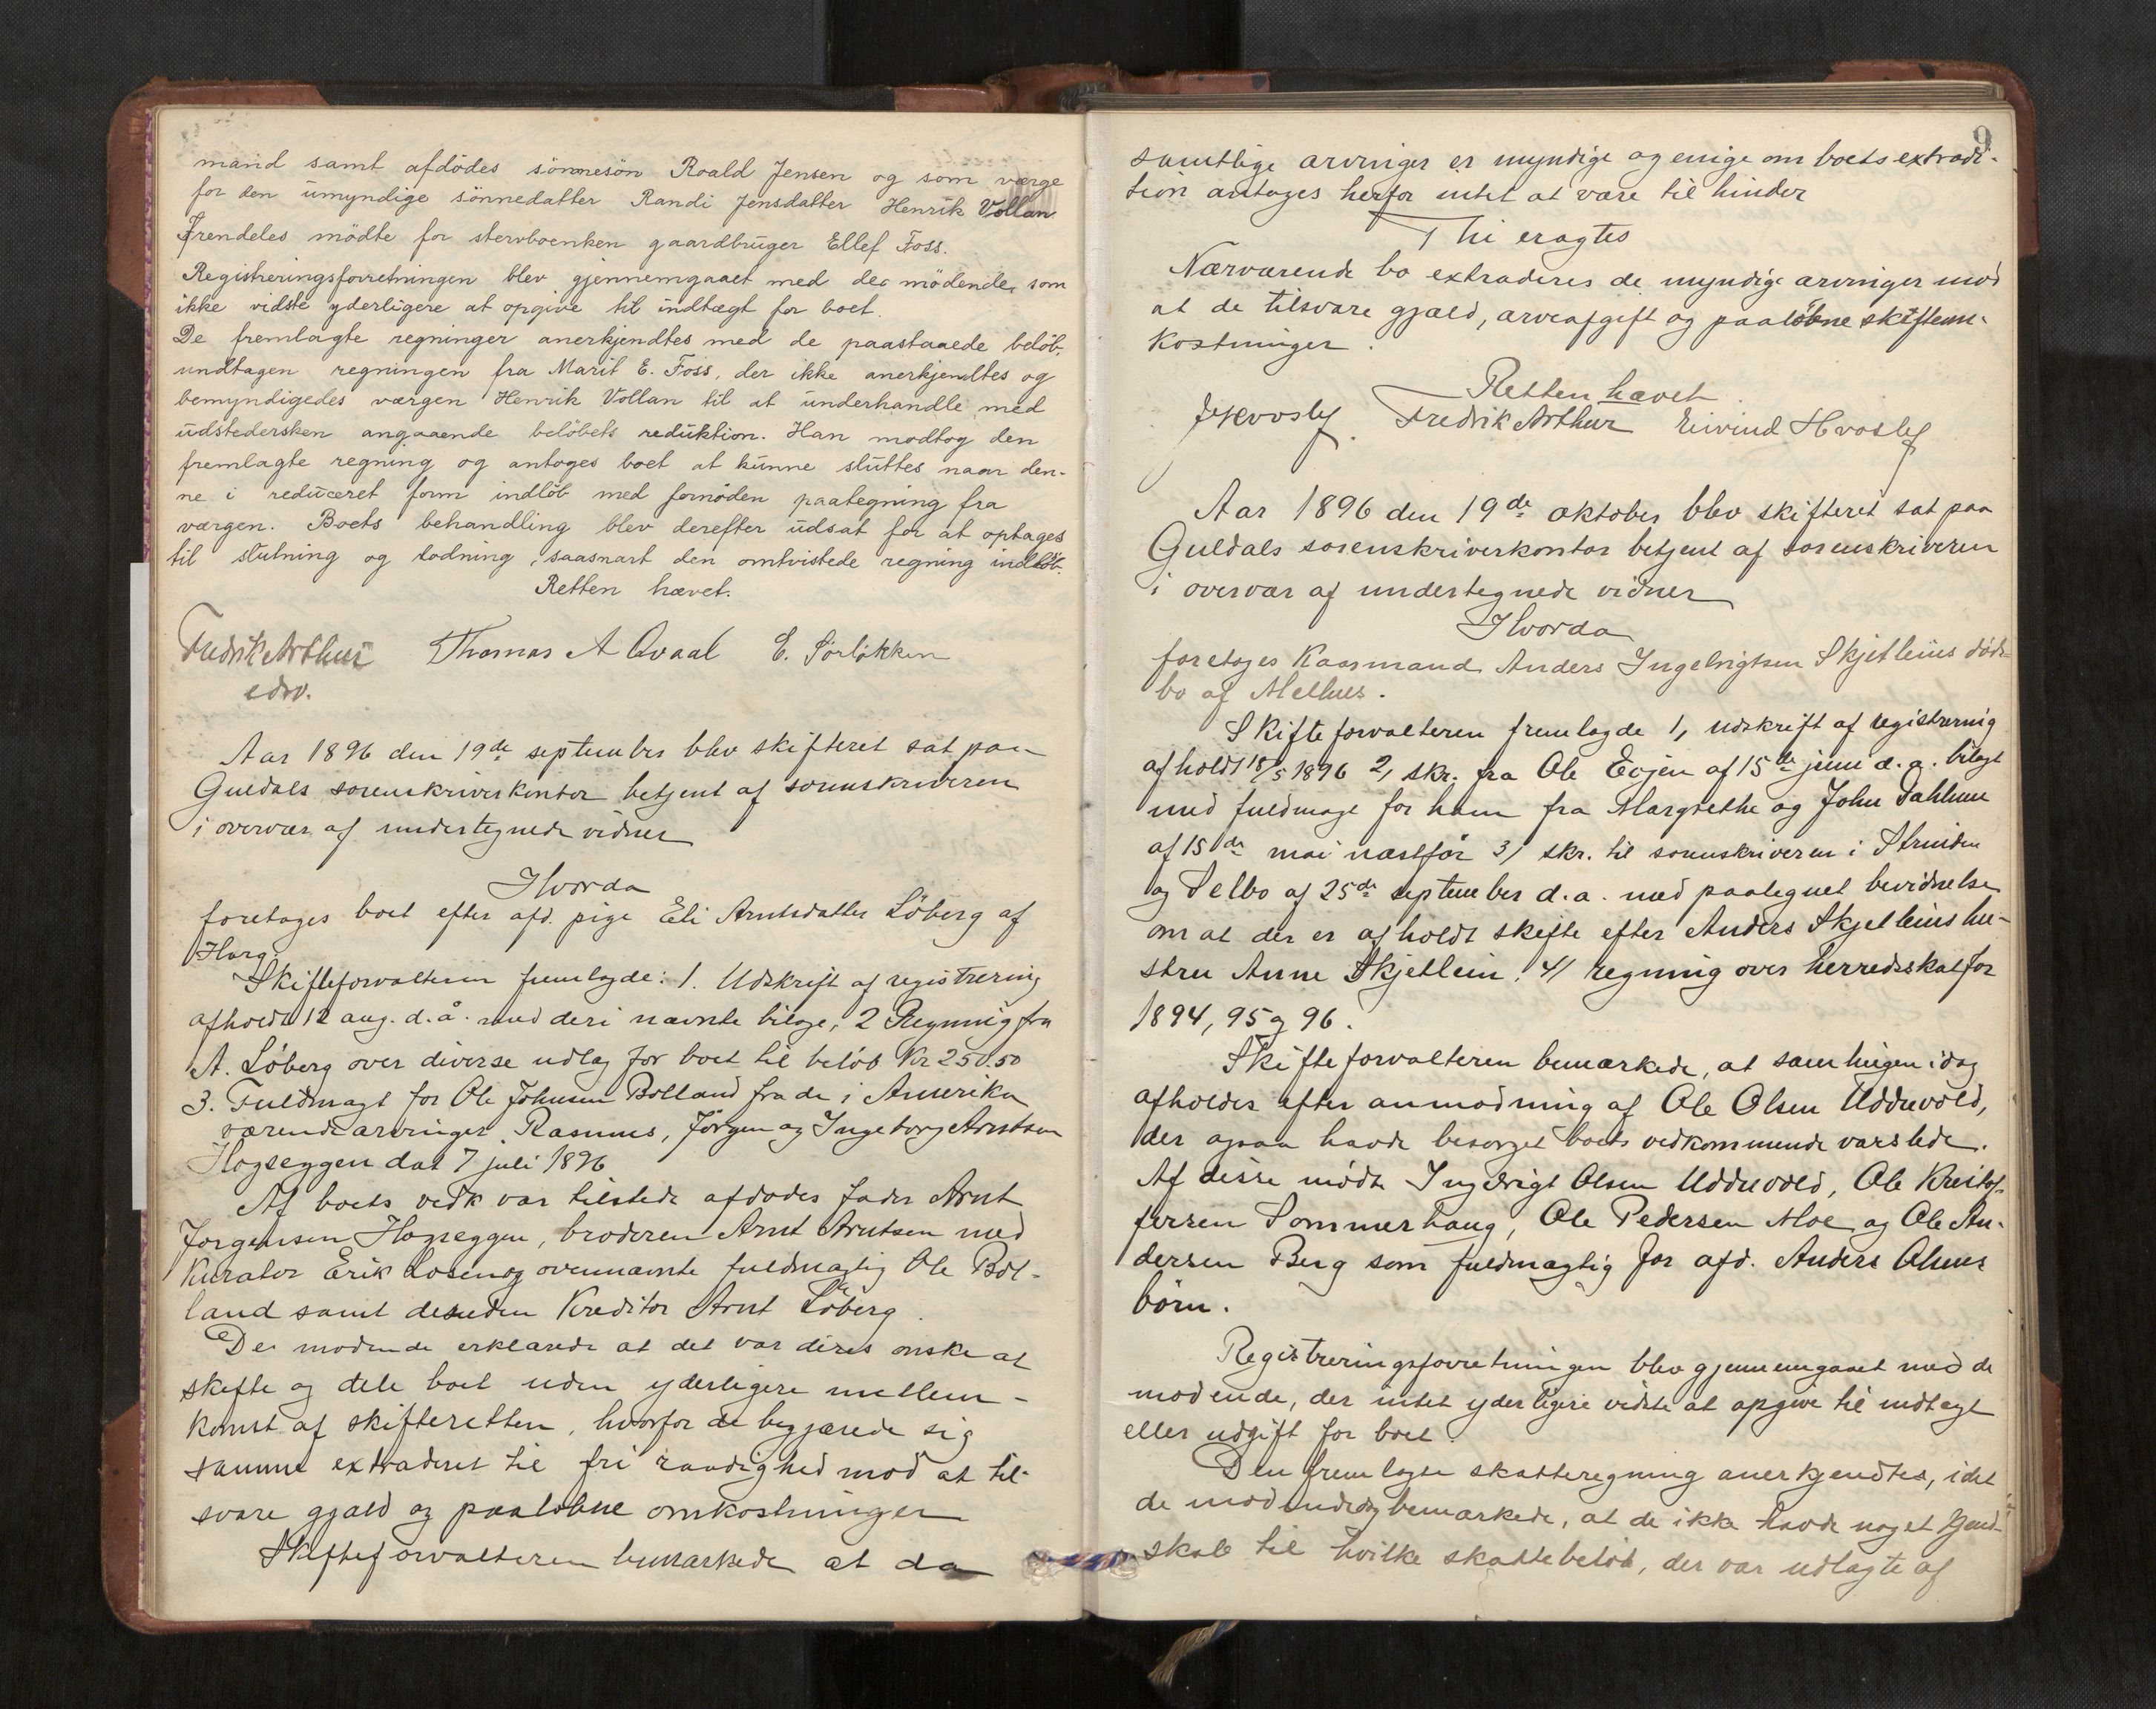 mand samt afdödes sönnesön Roald Jensen og som værge
for den umyndige sönnedatter Randi Jensdatter Henrik Vollan
Fremdeles mödte for stervboenken gaardbruger Ellef Foss.
Registreringsforretningen blev gjennemgaaet med de mödende, som
ikke vidste yderligere at opgive til indtægt for boet.
De fremlagte regninger anerkjendtes med de paastaaede belöb,
undtagen regningen fra Marit E. Foss, der ikke anerkjendtes og
bemyndigedes værgen Henrik Vollan til at underhandle med
udstedersken angaaende belöbets reduktion. Han modtog den
fremlagte regning og antoges boet at kunne sluttes naar den-
ne i reduceret form indlöb med fornöden paategning fra
værgen. Boets behandling blev derefter udsat for at optages
til slutning og lodning, saasnart den omtvistede regning indlöb.
Retten hævet.
Fredrik Arthur Thomas A Qvaal E. Sörlökken
edsv.
Aar 1896 den 19de september blev skifteret sat paa
Guldals sorenskriverkontor betjent af sorenskriveren
i overvær af undertegnede vidner
Hvorda
foretoges boet efter afd. pige Eli Arntsdatter Löberg af
Horg.
Skifteforvalteren fremlagde: 1. Udskrift af registrering
afholdt 12 aug. d.å. med deri nævnte bilage, 2 Regning fra
A. Löberg over diverse udlæg for boet til beløb Kr 250.50
3. Fuldmagt for Ole Johnsen Bolland fra de i Amerika
værende arvinger Rasmus, Jörgen og Ingeborg Arntsen
Hogseggen dat 7 juli 1896
Af boets vedk var tilstede afdødes fader Arnt
Jorgensen Hogseggen, broderen Arnt Arntsen med
kurator Erik Losen og ovennævnte fuldmægtig Ole Bol-
land samt desuden Kreditor Arnt Löberg.
De mødende erklærede at det var deres ønske at
skifte og dele boet uden yderligere mellem-
komst af skifteretten, hvorfor de begjærede sig
samme extraderet til fri raadighed mod at til-
svare gjæld og paaløbne omkostninger
Skifteforvalteren bemærkede at da
9
samtlige arvinger er myndige og enige om boets extradi-
tion antages herfor intet at være til hinder
Thi eragtes
Nærværende bo extraderes de myndige arvinger mod
at de tilsvare gjæld, arveafgift og paaløbne skifteom-
kostninger.
Retten hævet.
Fredrik Arthur Eivind Hvoslef
Aar 1896 den 19de oktober blev skifteret sat paa
Guldals sorenskriverkontor betjent af sorenskriveren
i overvær af undertegnede vidner
Hvorda
foretoges Kaarmand Anders Ingebrigtsen Skjetleins døds-
bo af Melhus.
Skifteforvalteren fremlagde 1, udskrift af registrering
afholdt 18/5 1896 2, skr. fra Ole Evjen af 15de juni d.a. bilagt
med fuldmagt for ham fra Margrethe og John Dahlum
af 15de mai næstfør 3/ skr. til sorenskriveren i Strinden
og Selbo af 25de september d.a. med paategnet bevidnelse
om at der er afholdt skifte efter Anders Skjetleins hu-
stru Anne Skjetlein. 4/ regning over herredsskat for
1894, 95 og 96.
Skifteforvalteren bemærkede, at samlingen idag
afholdes efter anmodning af Ole Olsen Udduvold,
der ogsaa havde besørget boets vedkommende varslede.
Af disse mødte Ingebrigt Olsen Udduvold, Ole Kristof-
fersen Sommerhaug, Ole Pedersen Moe og Ole An-
dersen Berg som fuldmægtig for afd. Anders Olsens
börn.
Registreringsforretningen blev gjennemgaaet med de
mødende, der intet yderligere vidste at opgive til indtægt
eller udgift for boet.
Den fremlagte skatteregning anerkjendtes, idet
de mødende dog bemærkede, at de ikke havde noget kjend-
skab til hvilke skattebeløb, der var udlagte af